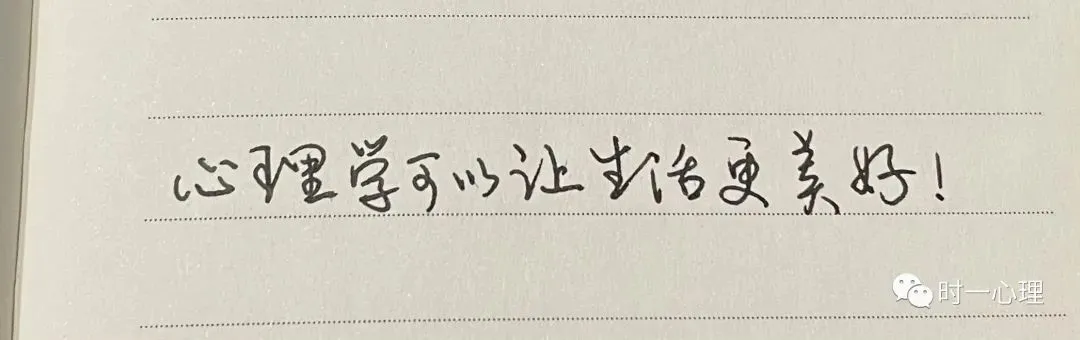 心理学可以让生活更美好！
时一心理